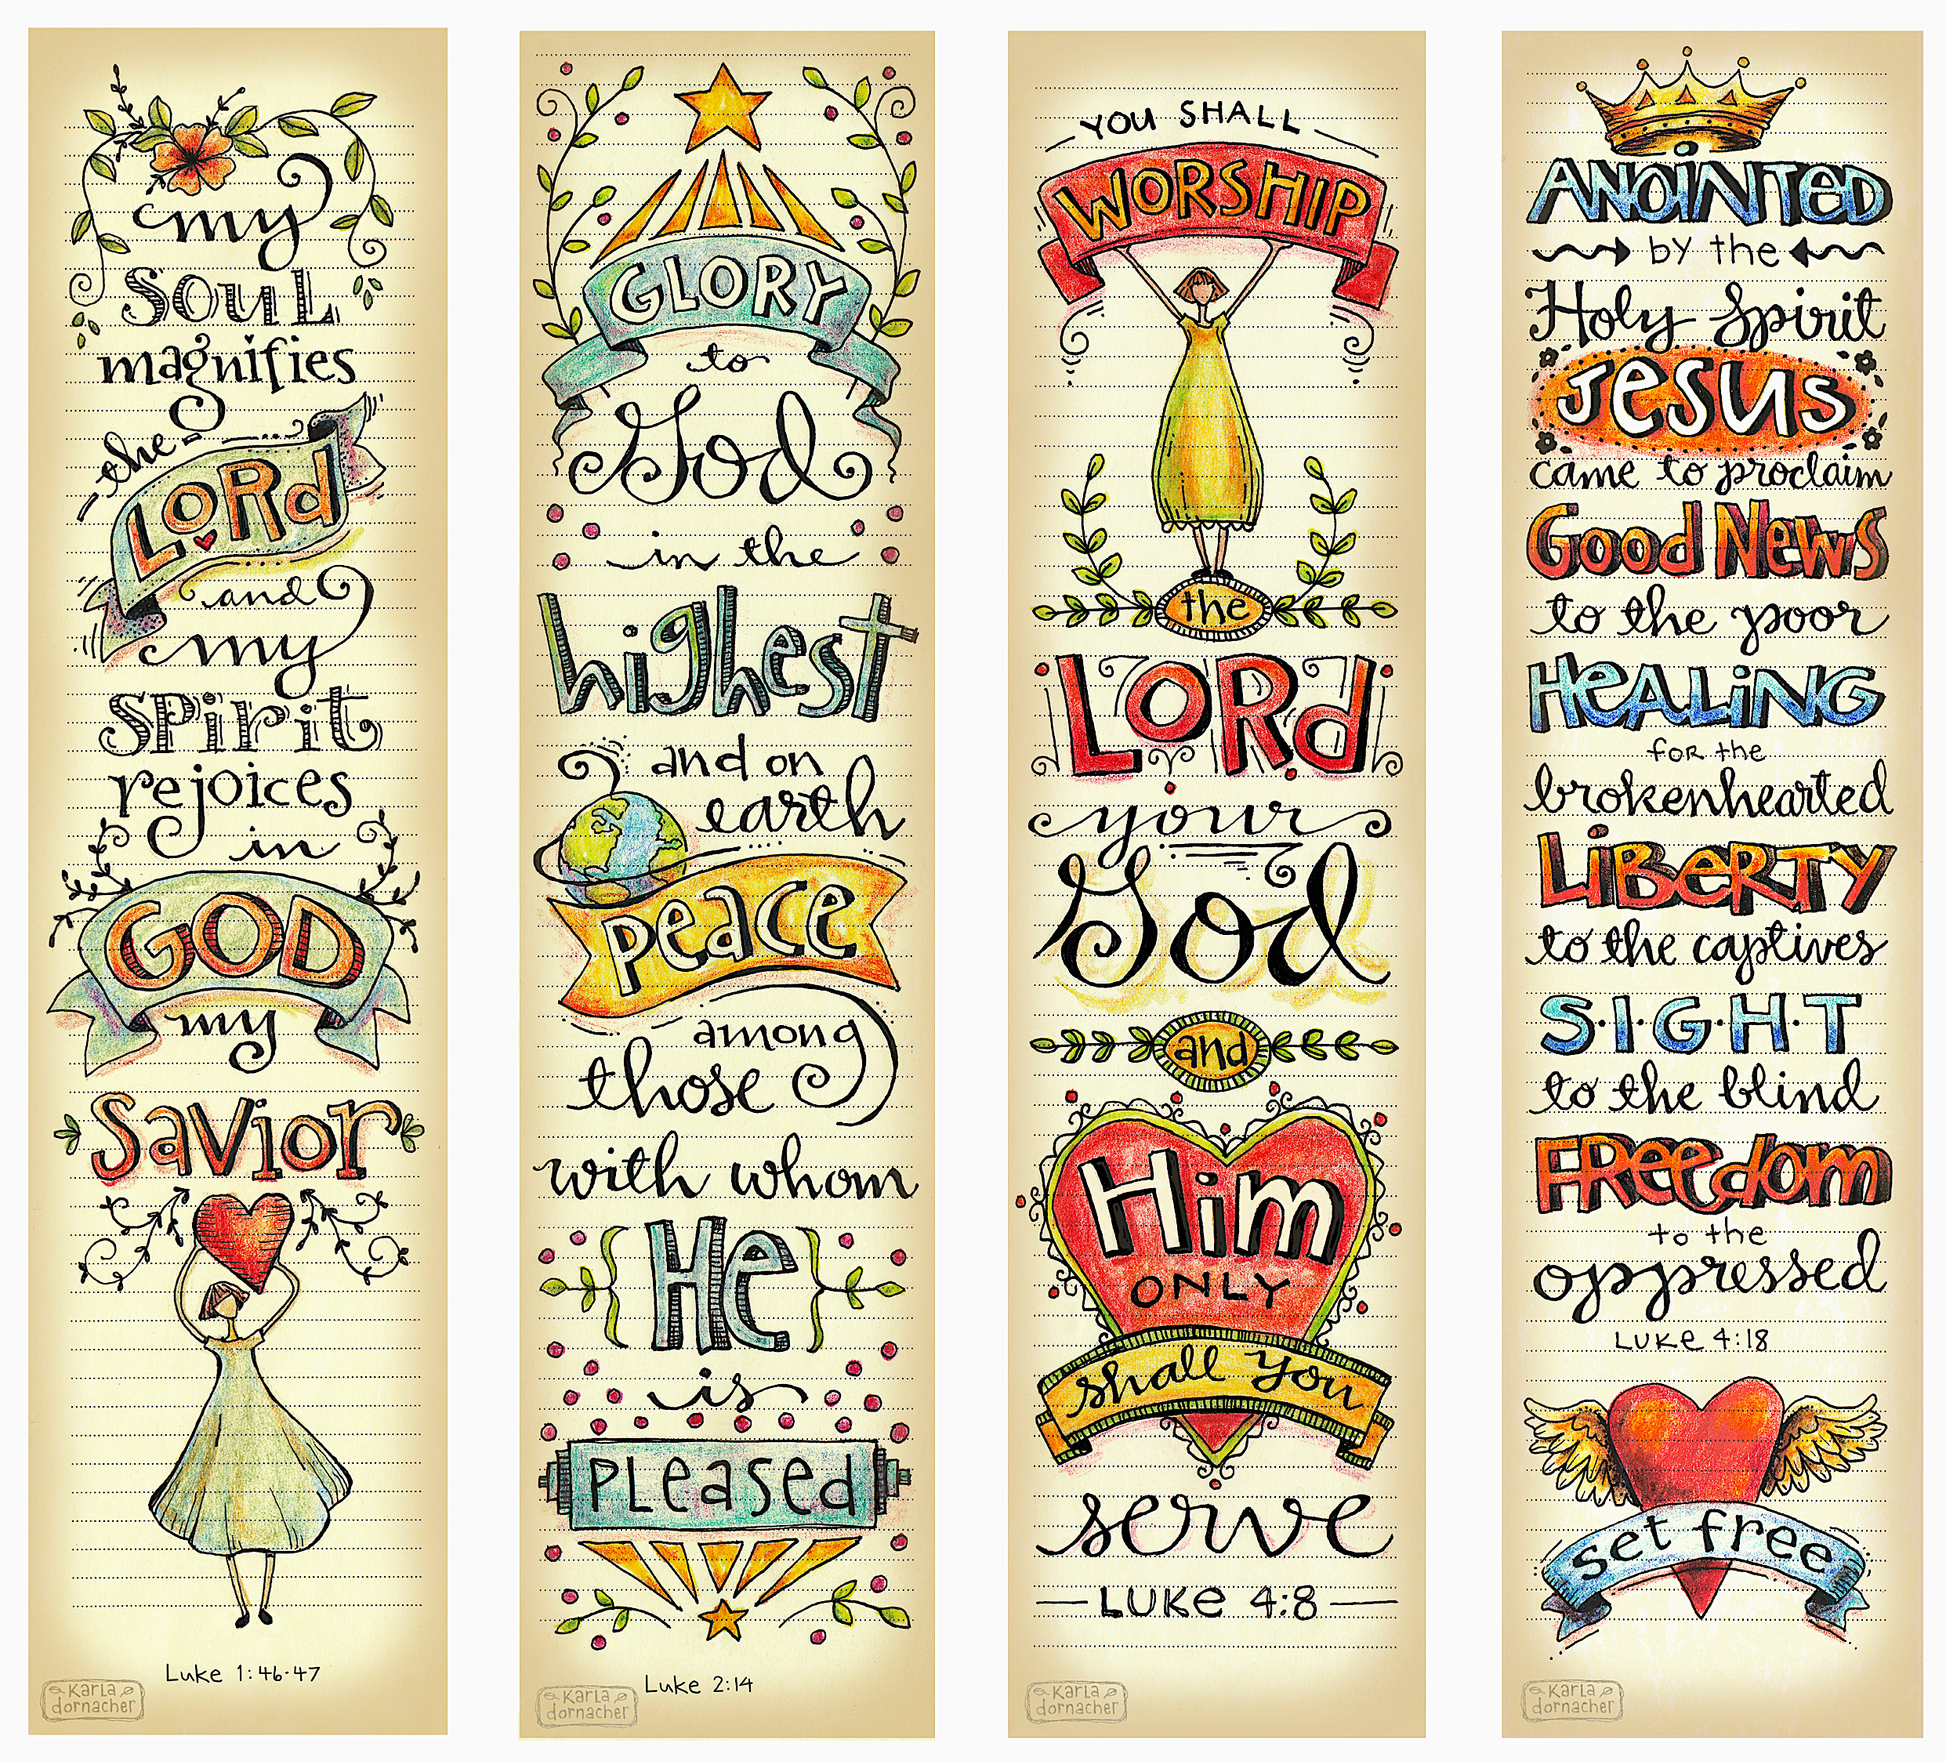 my
soul
magnifies
the
LoRd
and
my
spirit
rejoices
in
GOD
my
Savior
Luke 1:46-47
KaRLa
dornacher
GLORY
to
God
in the
highest
and on
earth
peace
among
those
with whom
He
is
PLeased
Luke 2:14
KaRLa
dornacher
YOU SHALL
WORSHIP
the
LoRd
your
God
and
Him
ONLY
shall you
serve
LUKe 4:8
KaRLa
dornacher
ANOiNTeD
by the
Holy Spirit
Jesus
came to proclaim
Good News
to the poor
HeALiNG
for the
brokenhearted
LiBeRTY
to the captives
S·I·G·H·T
to the blind
FReedom
to the
oppressed
LUKe 4:18
set free
KaRLa
dornacher